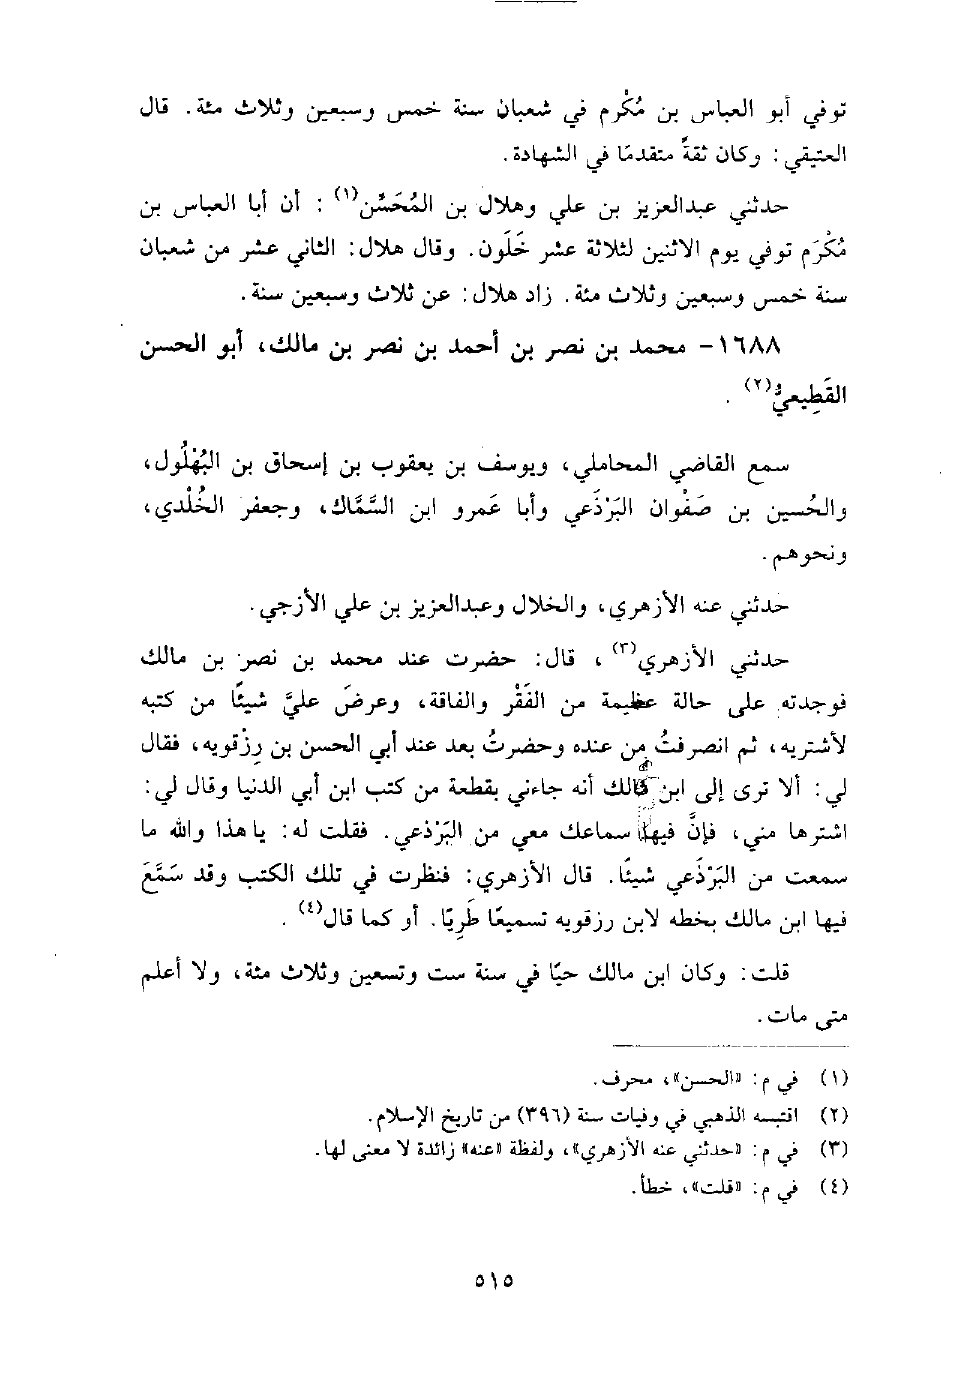 توفي أبو العباس بن مُكْرم في شعبان سنة خمس وسبعين وثلاث مئة. قال
العتيقي: وكان ثقةً متقدمًا في الشهادة.
حدثني عبدالعزيز بن علي وهلال بن المُحَسِّن(١): أن أبا العباس بن
مُكْرَم توفي يوم الاثنين لثلاثة عشر خَلَون. وقال هلال: الثاني عشر من شعبان
سنة خمس وسبعين وثلاث مئة. زاد هلال: عن ثلاث وسبعين سنة.
١٦٨٨- محمد بن نصر بن أحمد بن نصر بن مالك، أبو الحسن
القَطِيعيُّ(٢).
سمع القاضي المحاملي، ويوسف بن يعقوب بن إسحاق بن البُهْلُول،
والحُسين بن صَفْوان البَرْذَعي وأبا عَمرو ابن السَّمَّاك، وجعفر الخُلْدي،
ونحوهم.
حدثني عنه الأزهري، والخلال وعبدالعزيز بن علي الأزجي.
حدثني الأزهري(٣)، قال: حضرت عند محمد بن نصر بن مالك
فوجدته على حالة عظيمة من الفَقْر والفاقة، وعرضَ عليَّ شيئًا من كتبه
لأشتريه، ثم انصرفتُ من عنده وحضرتُ بعد عند أبي الحسن بن رِزْقويه، فقال
لي: ألا ترى إلى ابن مالك أنه جاءني بقطعة من كتب ابن أبي الدنيا وقال لي:
اشترها مني، فإنَّ فيها سماعك معي من البَرْذعي. فقلت له: يا هذا والله ما
سمعت من البَرْذَعي شيئًا. قال الأزهري: فنظرت في تلك الكتب وقد سَمَّعَ
فيها ابن مالك بخطه لابن رزقويه تسميعًا طَرِيًا. أو كما قال(٤).
قلت: وكان ابن مالك حيًا في سنة ست وتسعين وثلاث مئة، ولا أعلم
متى مات.
(١) في م: «الحسن»، محرف.
(٢) اقتبسه الذهبي في وفيات سنة (٣٩٦) من تاريخ الإسلام.
(٣) في م: «حدثني عنه الأزهري»، ولفظة «عنه» زائدة لا معنى لها.
(٤) في م: «قلت»، خطأ.
٥١٥